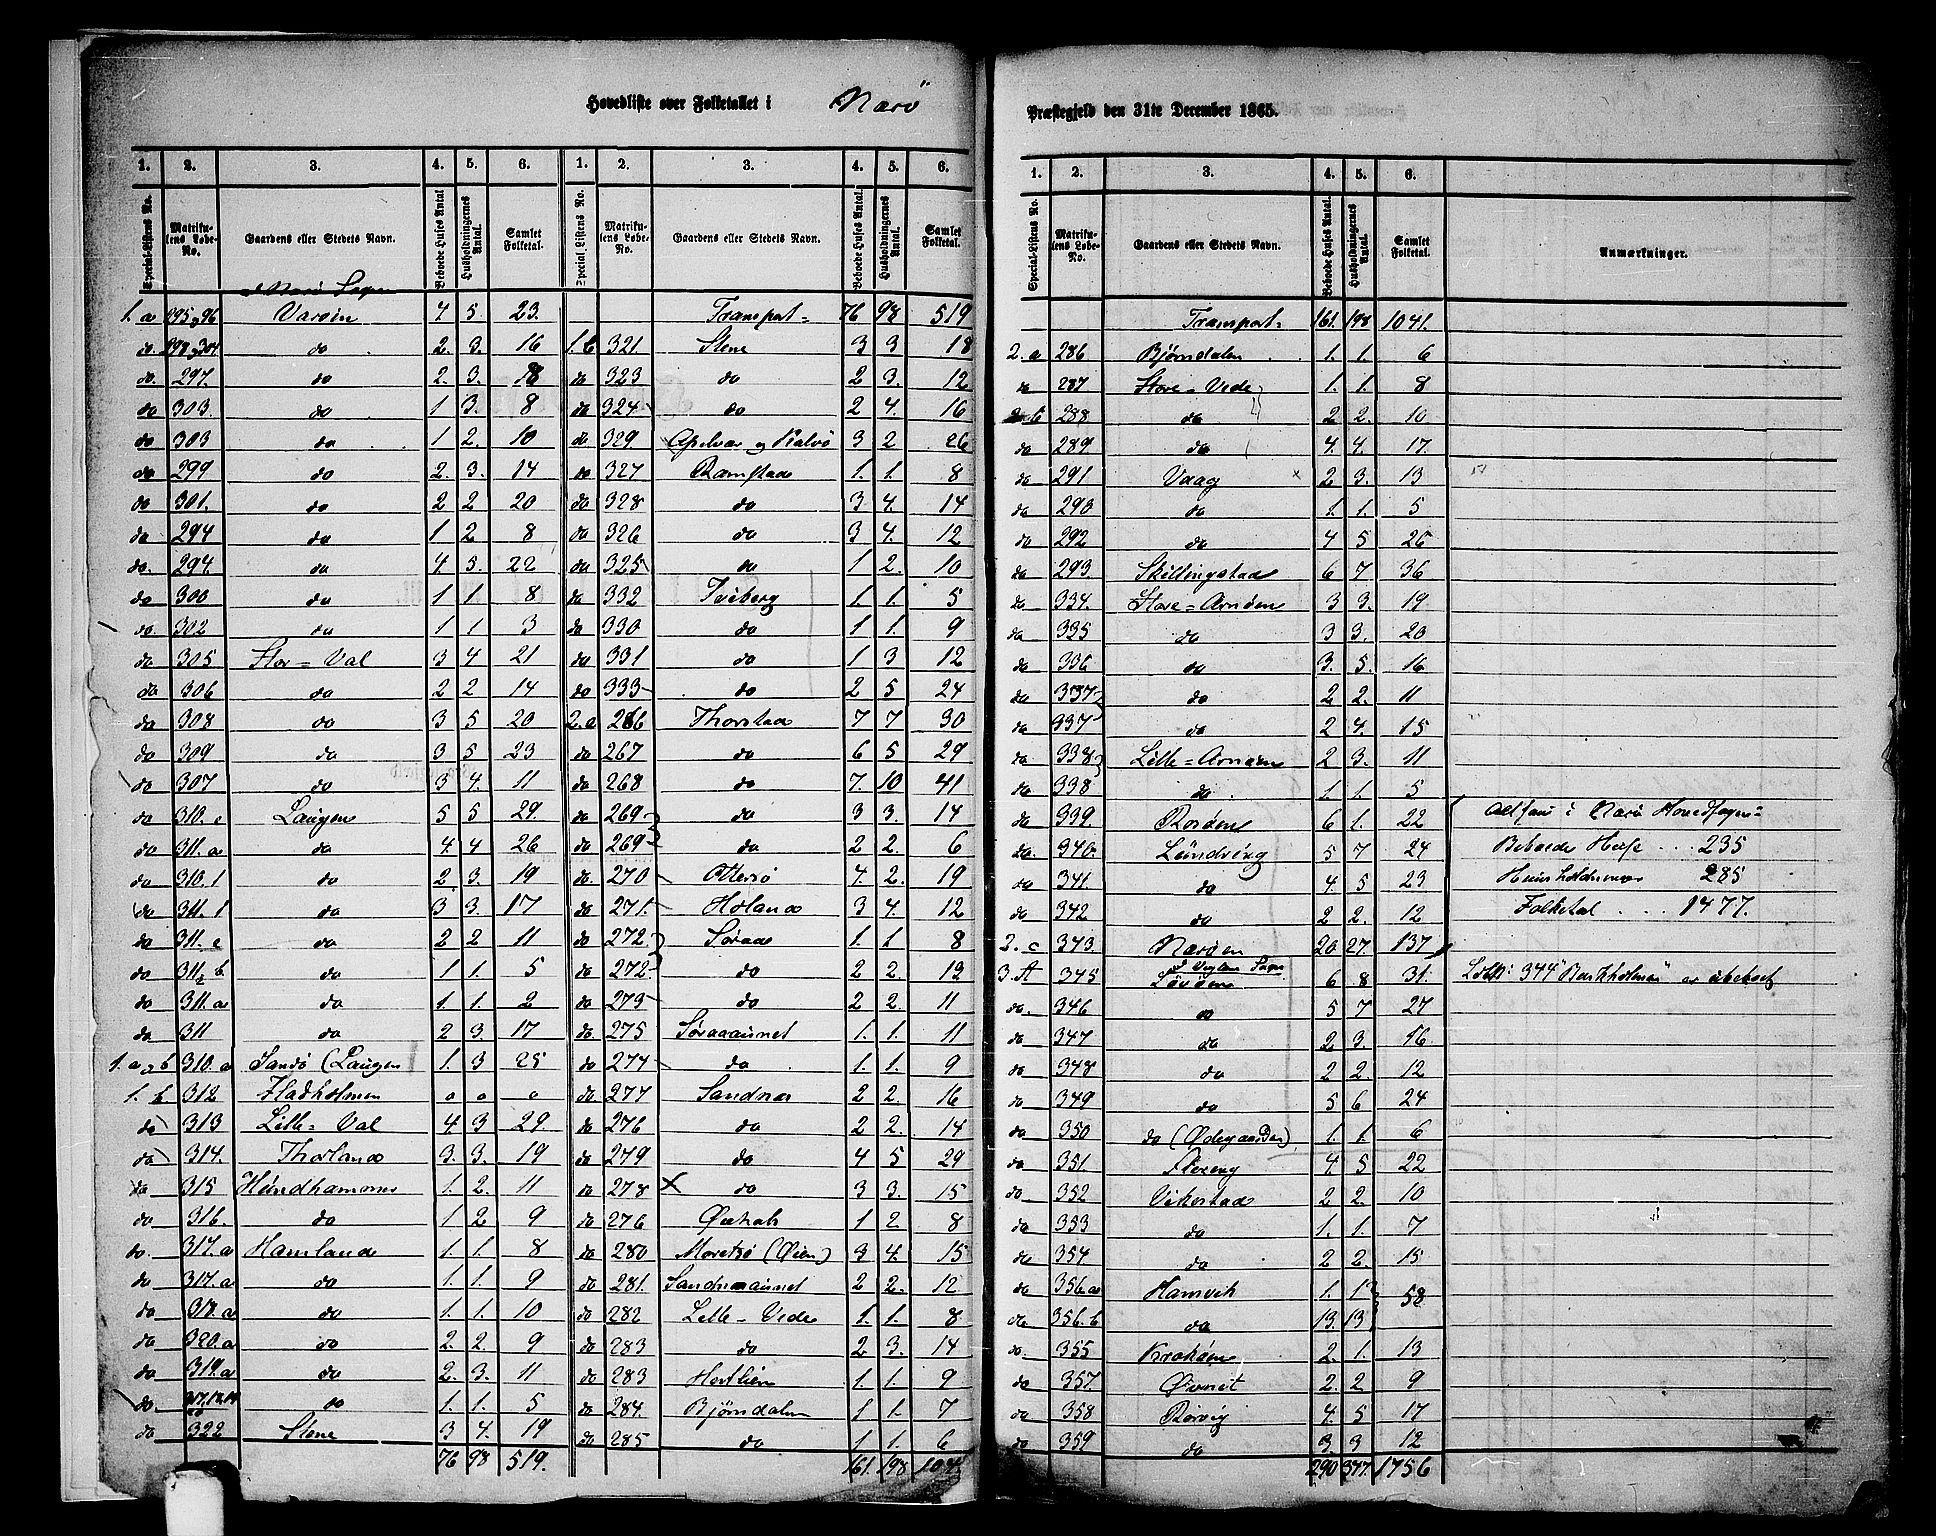 Hovedliste over Folketallet i Nærö Præstegjeld den 31te December 1865.
1. 2. 3. 4. 5. 6. 1. 2. 3. 4. 5. 6.
Special-Listens No. Matrikulens Løbe-No. Gaardens eller Stedets Navn. Beboede Huses Antal Husholdningernes Antal. Samlet Folketal. Special-Listens No. Matrikulens Løbe-No. Gaardens eller Stedets Navn. Beboede Huses Antal. Husholdningernes Antal. Samlet Folketal.
Nærö Sogn
1. a 295 & 96 Varöen 4 5. 23.
do. 298 & 304 do 2. 3. 16
do. 297. do 2. 3. 18
do 303. do 1 3. 8
do 303 do 1 2. 10
do 299 do 2. 3. 14
do 301. do 2 2. 20
do 294 do 1 2 8
do. 294. do 4 5. 22
do 300 do 1 1. 8
do. 302 do 1 1 3
do 305 Stor=Val 3 4 21
do 306 do 2 2 14
do 308 do 3 5 20
do 309 do 3 5 23
do 307 do 3 4. 11
do 310. c Laugen 5 5 29.
do 311. a do 4. 4 26
do 310. 1 do 2 3. 19
do 311. 1 do 3 3. 17
do 311. c do 2 2 11
do 311 2 b. do 1 1. 5
do 311. a do 1. 1. 2
do 311 do 2 3. 17
1. a & b 310. a Sandö (Laugen 1. 3 25
1. b 312 Fladholmen o o o
do 313 Lille=Val 4 3 29
do 314. Thorland 3. 3. 19
do 315 Hundhammer 1. 2. 11
do 316. do 1 2 9
do. 317. a Hamland 1. 1. 8
do 317. a do 1. 1. 9
do 318. a do 1. 1. 10
do 320. a do 2. 2. 9
do 319. a do 2. 3. 11
do. 317. 18. 19 do 1. 1. 5
do 322 Stene 3 4. 19
76 98 519.
Transport= 76 98 519
1. b 321 Stene 3 3 18
do 323 do 2 3. 12
do 324 do 2 4. 16
do. 329 Apelvær og Kalvö 3 2 26
do 327 Ramstad 1. 1. 8
do 328 do 3 4. 14
do 326 do 3 4. 12
do 325 do 1 2. 10
do 332 Tviberg 1. 1. 5
do 330 do 1 1. 9
do 331 do 1 3 12
do 333 do 2 5 24
2. a 266 Thorstad 7 7 30
do 267 do 6 5 29
do 268 do 7. 10 41
do 269 do 3 3. 14
do 269 do 2 2. 6
do. 270 Ottersö 4. 2. 19
do 271. Horland 3 4. 12
do 272 Søraa 1. 1 8
do 272 do 2 2. 12
do 273 do 2 2. 11
do 275 Søraaaunet 1. 1. 11
do 274 do 1. 1. 9
do 277 Sandnæs 2 2. 16
do 276 do 2 2. 14
do 279 do 4 5 29
do 278 do 3 3. 15
do 276 1 2. 8
do 280 Moretrö (Øien) 3 4. 15
do 281. Sandnæsaunet 2 2. 12
do 282 Lille=Vede 1. 1. 8
do 283 do 2 3. 14
do 283 Hestlien 1. 1. 9
do 284. Bjørndalen 1 1. 7
do 285 do 1 1. 6
161. 198 1041
1. 2. 3. 4. 5. 6.
Special-Listens No. Matrikulens Løbe-No. Gaardens eller Stedets Navn. Beboede Huses Antal. Husholdningernes Antal. Samlet Folketal. Anmærkninger.
Transport= 161. 198 1041.
2. a 286 Bjørndalen 1. 1. 6
do 287 Store=Vede 1. 1. 8
2. b 288 do 2 2. 10
do 289 do 4. 4. 17.
do 291 Vaag 2 3. 13
do 290 do 1. 1. 5
do 292 do 4 5 26
do 293. Skillingstad 6 7 36
do 334. Store=Arnöen 3 3. 19
do 335 do 3 3. 20
do 336 do 3. 5. 16
do 337 do 2 2. 11
do 337 do 2 4. 15
do 338 Lille=Arnöen 2 3. 11
do 338 do. 1. 1. 5
do 339. Rosöen 6 1. 22 Altsaa i Nærö Hovedsogn=
do. 340. Lundring 5 7 24 Beboede Huse . . . 235
do 341. do 4. 5 23 Husholdninger 285
do 342 do 2 2. 12 Folketal . . . 1477.
2. c 343 Nærøen 20 27. 137
Vigten Sogn
3. A 345 6 8 31. 344 "Barkholmen" er ubeboet
do. 346 do 5 7 27
do 347 do 2 3. 16
do 348 do 2 2. 12
do 349 do 5 6 24
do 350 do (Ødegaarden) 1. 1. 6
do 351. Flereng 4. 5 22
do 352 Vikestad 2 2. 10
do 353 do 1. 1. 7
do 354 do 2 2. 15
do 356. a Hamvik 1. 1 58
do 356. b do 13. 13
do. 355 Kraköen 2. 1. 13
do 357. Øvnet 2. 2 9
do 358 Rörvig 4. 5 17
do 359 do 3. 3 12
290 377. 1756